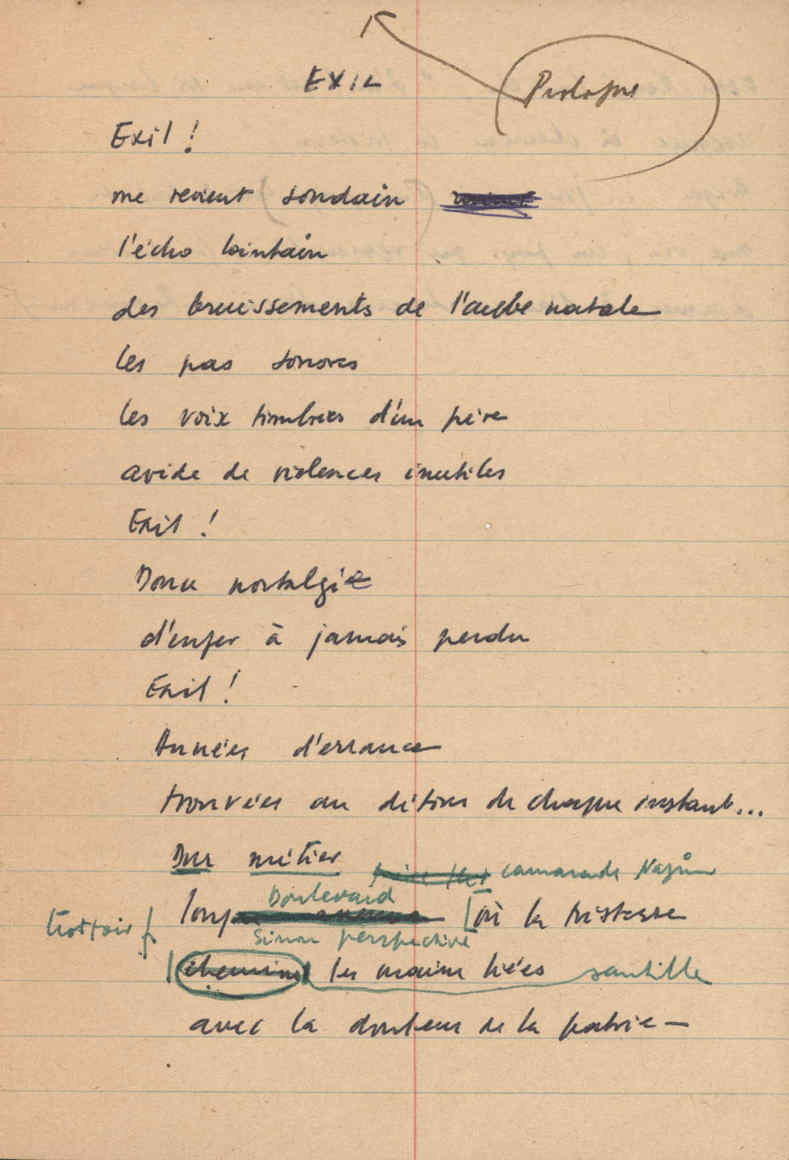 EXIL
Prologue
Exil !
me revient soudain
l'écho lointain
des bruissements de l'aube natale
les pas sonores
les voix timbrées d'un père
avide de violences inutiles
Exil !
Douce nostalgie
d'enfer à jamais perdu
Exil !
Années d'errance
trouvées au détour de chaque instant...
Dur métier
camarade Nazim
Boulevard
trottoir
où la tristesse
Sinon perspective
chemine les mains liées
sautille
avec la douleur de la patrie —